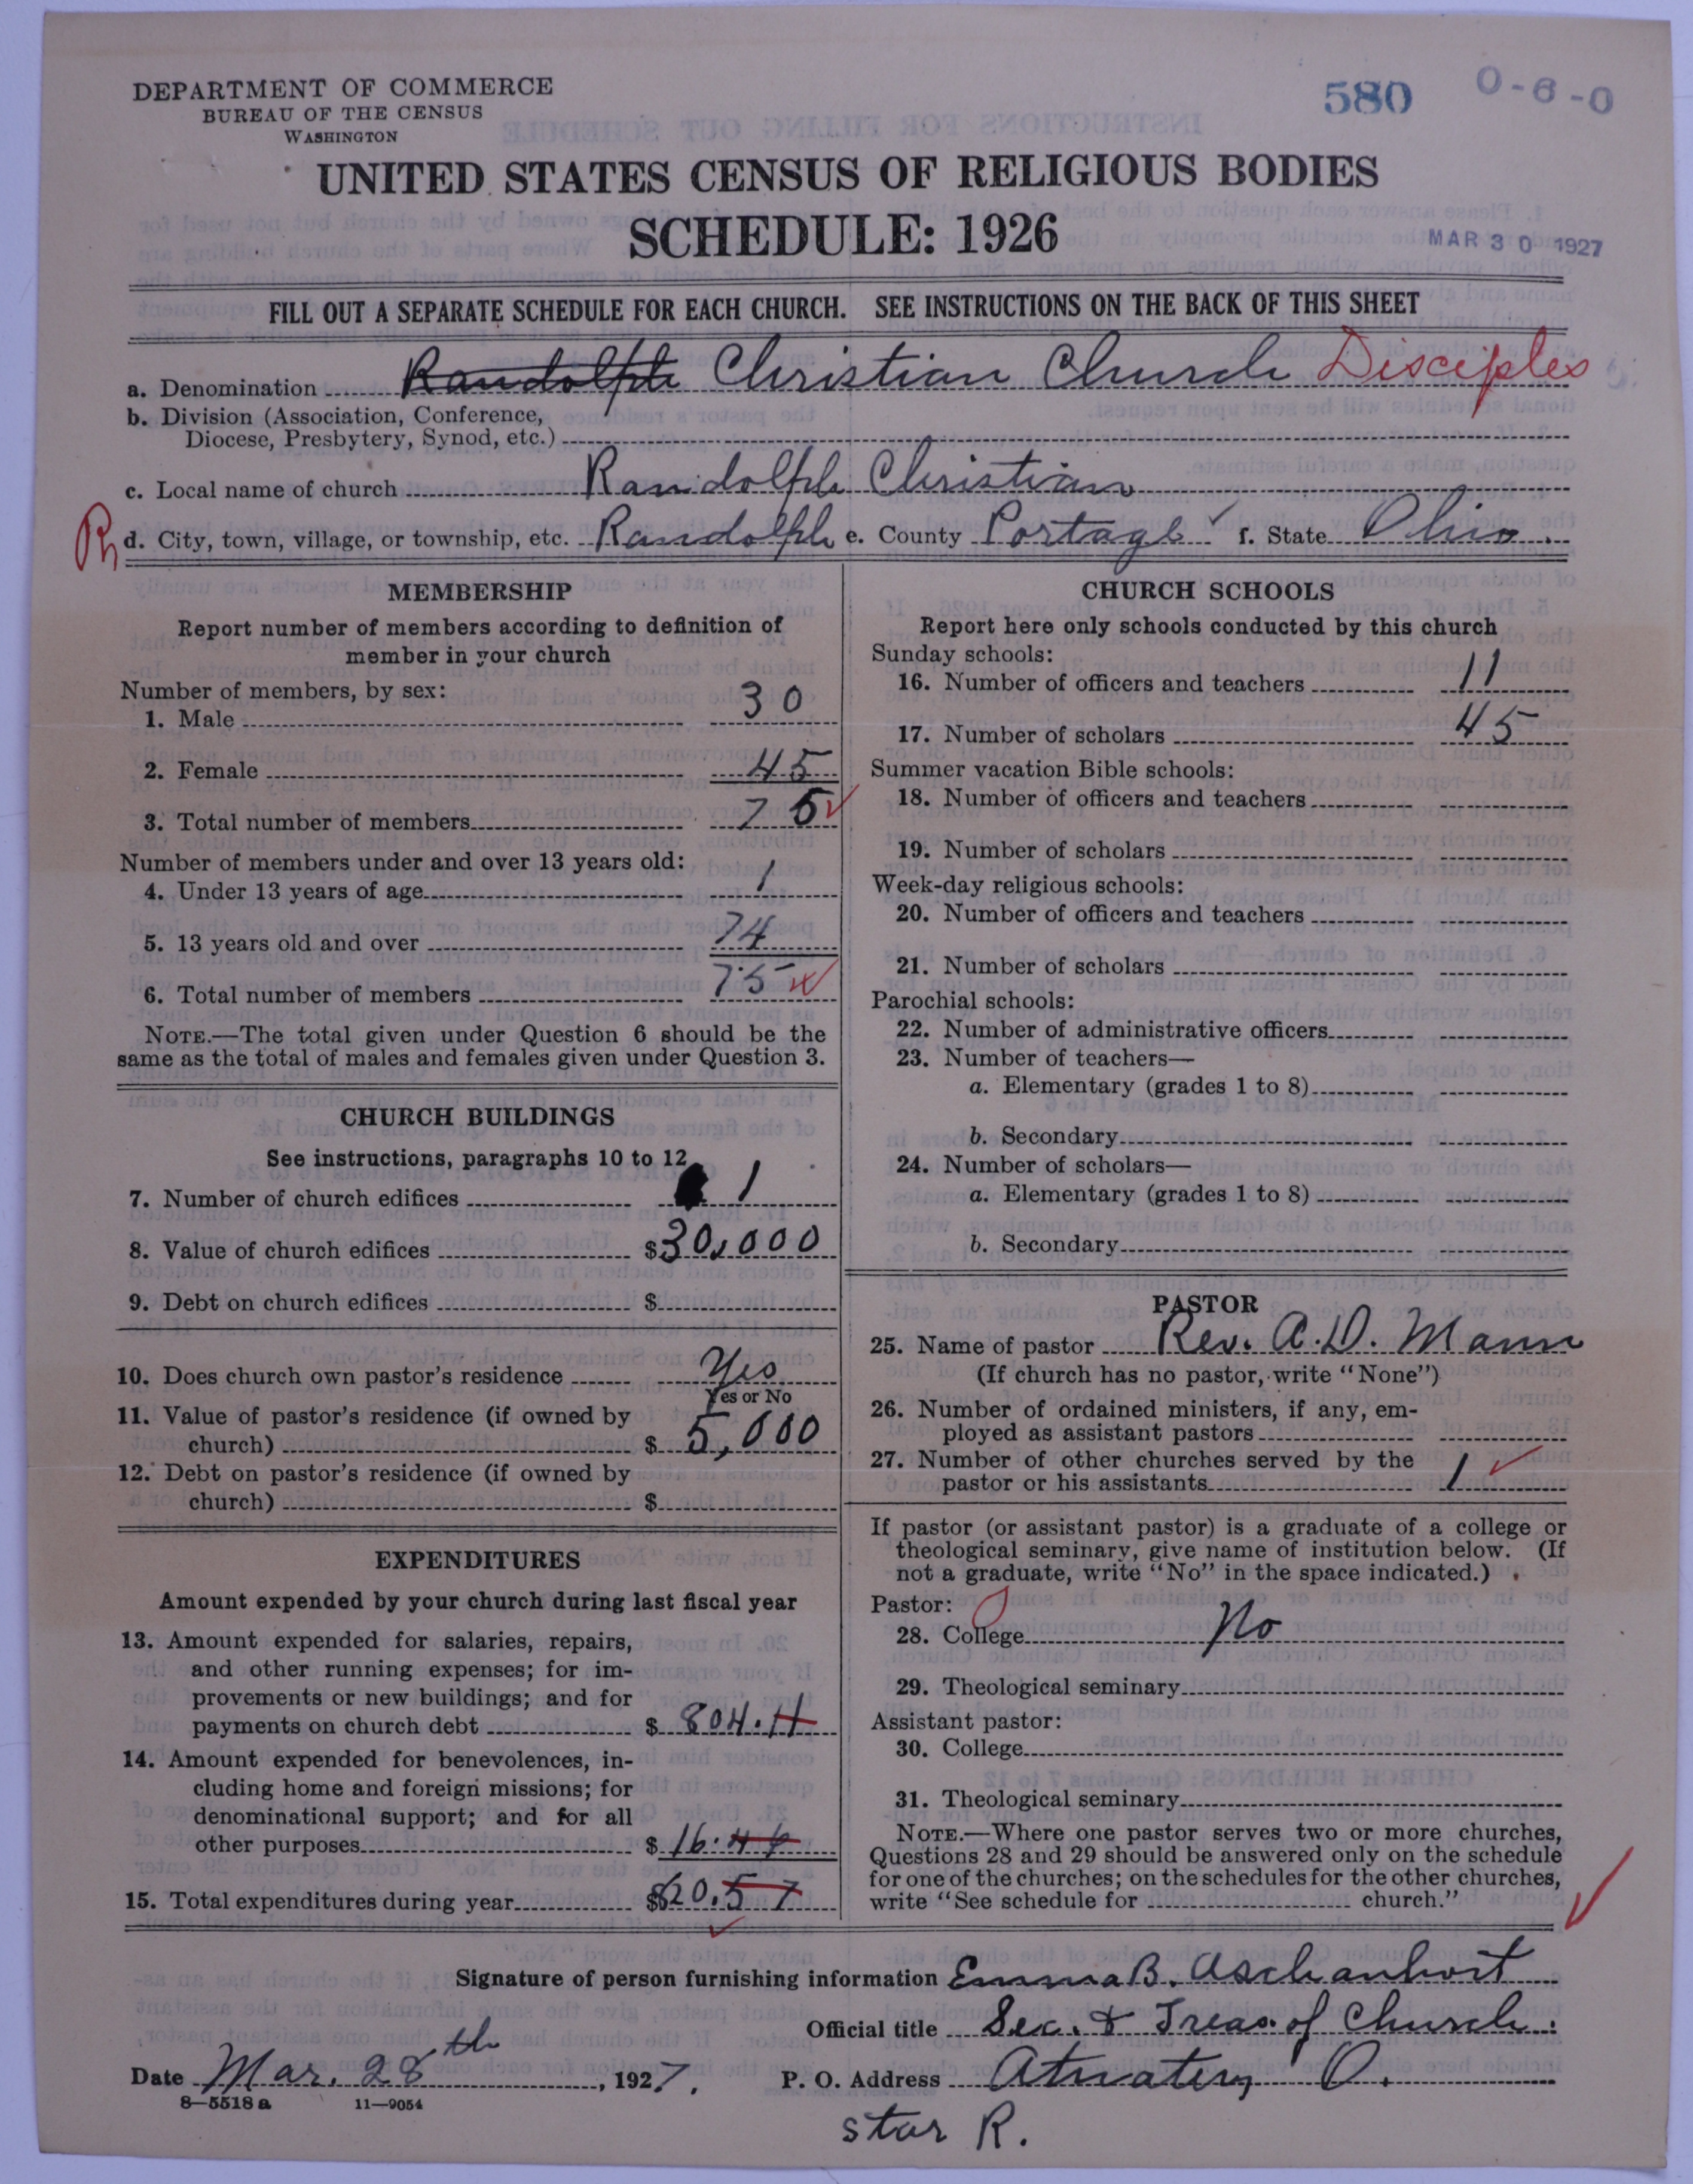 DEPARTMENT OF COMMERCE
BUREAU OF THE CENSUS
WASHINGTON
580 0-6-0
UNITED STATES CENSUS OF RELIGIOUS BODIES
SCHEDULE: 1926
MAR 30 1927
FILL OUT A SEPARATE SCHEDULE FOR EACH CHURCH. SEE INSTRUCTIONS ON THE BACK OF THIS SHEET
a. Denomination Randolph Christian Church Disciples
b. Division (Association, Conference,
Diocese, Presbytery, Synod, etc.)
c. Local name of church Randolph Christian
d. City, town, village, or township, etc. Randolph e. County Portage f. State Ohio.
MEMBERSHIP
Report number of members according to definition of
member in your church
Number of members, by sex:
1. Male 30
2. Female 45
3. Total number of members 75
Number of members under and over 13 years old:
4. Under 13 years of age 1
5. 13 years old and over 74
6. Total number of members 75
NOTE.—The total given under Question 6 should be the
same as the total of males and females given under Question 3.
CHURCH BUILDINGS
See instructions, paragraphs 10 to 12
7. Number of church edifices 1
8. Value of church edifices $30,000
9. Debt on church edifices $
10. Does church own pastor's residence Yes
Yes or No
11. Value of pastor's residence (if owned by
church) $ 5,000
12. Debt on pastor's residence (if owned by
church) $
EXPENDITURES
Amount expended by your church during last fiscal year
13. Amount expended for salaries, repairs,
and other running expenses; for im-
provements or new buildings; and for
payments on church debt $ 804.11
14. Amount expended for benevolences, in-
cluding home and foreign missions; for
denominational support; and for all
other purposes $ 16.46
15. Total expenditures during year $820.57
CHURCH SCHOOLS
Report here only schools conducted by this church
Sunday schools:
16. Number of officers and teachers 11
17. Number of scholars 45
Summer vacation Bible schools:
18. Number of officers and teachers
19. Number of scholars
Week-day religious schools:
20. Number of officers and teachers
21. Number of scholars
Parochial schools:
22. Number of administrative officers
23. Number of teachers—
a. Elementary (grades 1 to 8)
b. Secondary
24. Number of scholars—
a. Elementary (grades 1 to 8)
b. Secondary
PASTOR
25. Name of pastor Rev. A. D. Mann
(If church has no pastor, write "None")
26. Number of ordained ministers, if any, em-
ployed as assistant pastors
27. Number of other churches served by the
pastor or his assistants 1
If pastor (or assistant pastor) is a graduate of a college or
theological seminary, give name of institution below. (If
not a graduate, write "No" in the space indicated.)
Pastor:
28. College No
29. Theological seminary
Assistant pastor:
30. College
31. Theological seminary
NOTE.—Where one pastor serves two or more churches,
Questions 28 and 29 should be answered only on the schedule
for one of the churches; on the schedules for the other churches,
write "See schedule for church."
Signature of person furnishing information Emma B. Aschanhort
Official title Sec. & Treas. of Church.
Date Mar. 28th, 1927. P. O. Address Atwater, O.
8—5518 a 11—9054
star R.